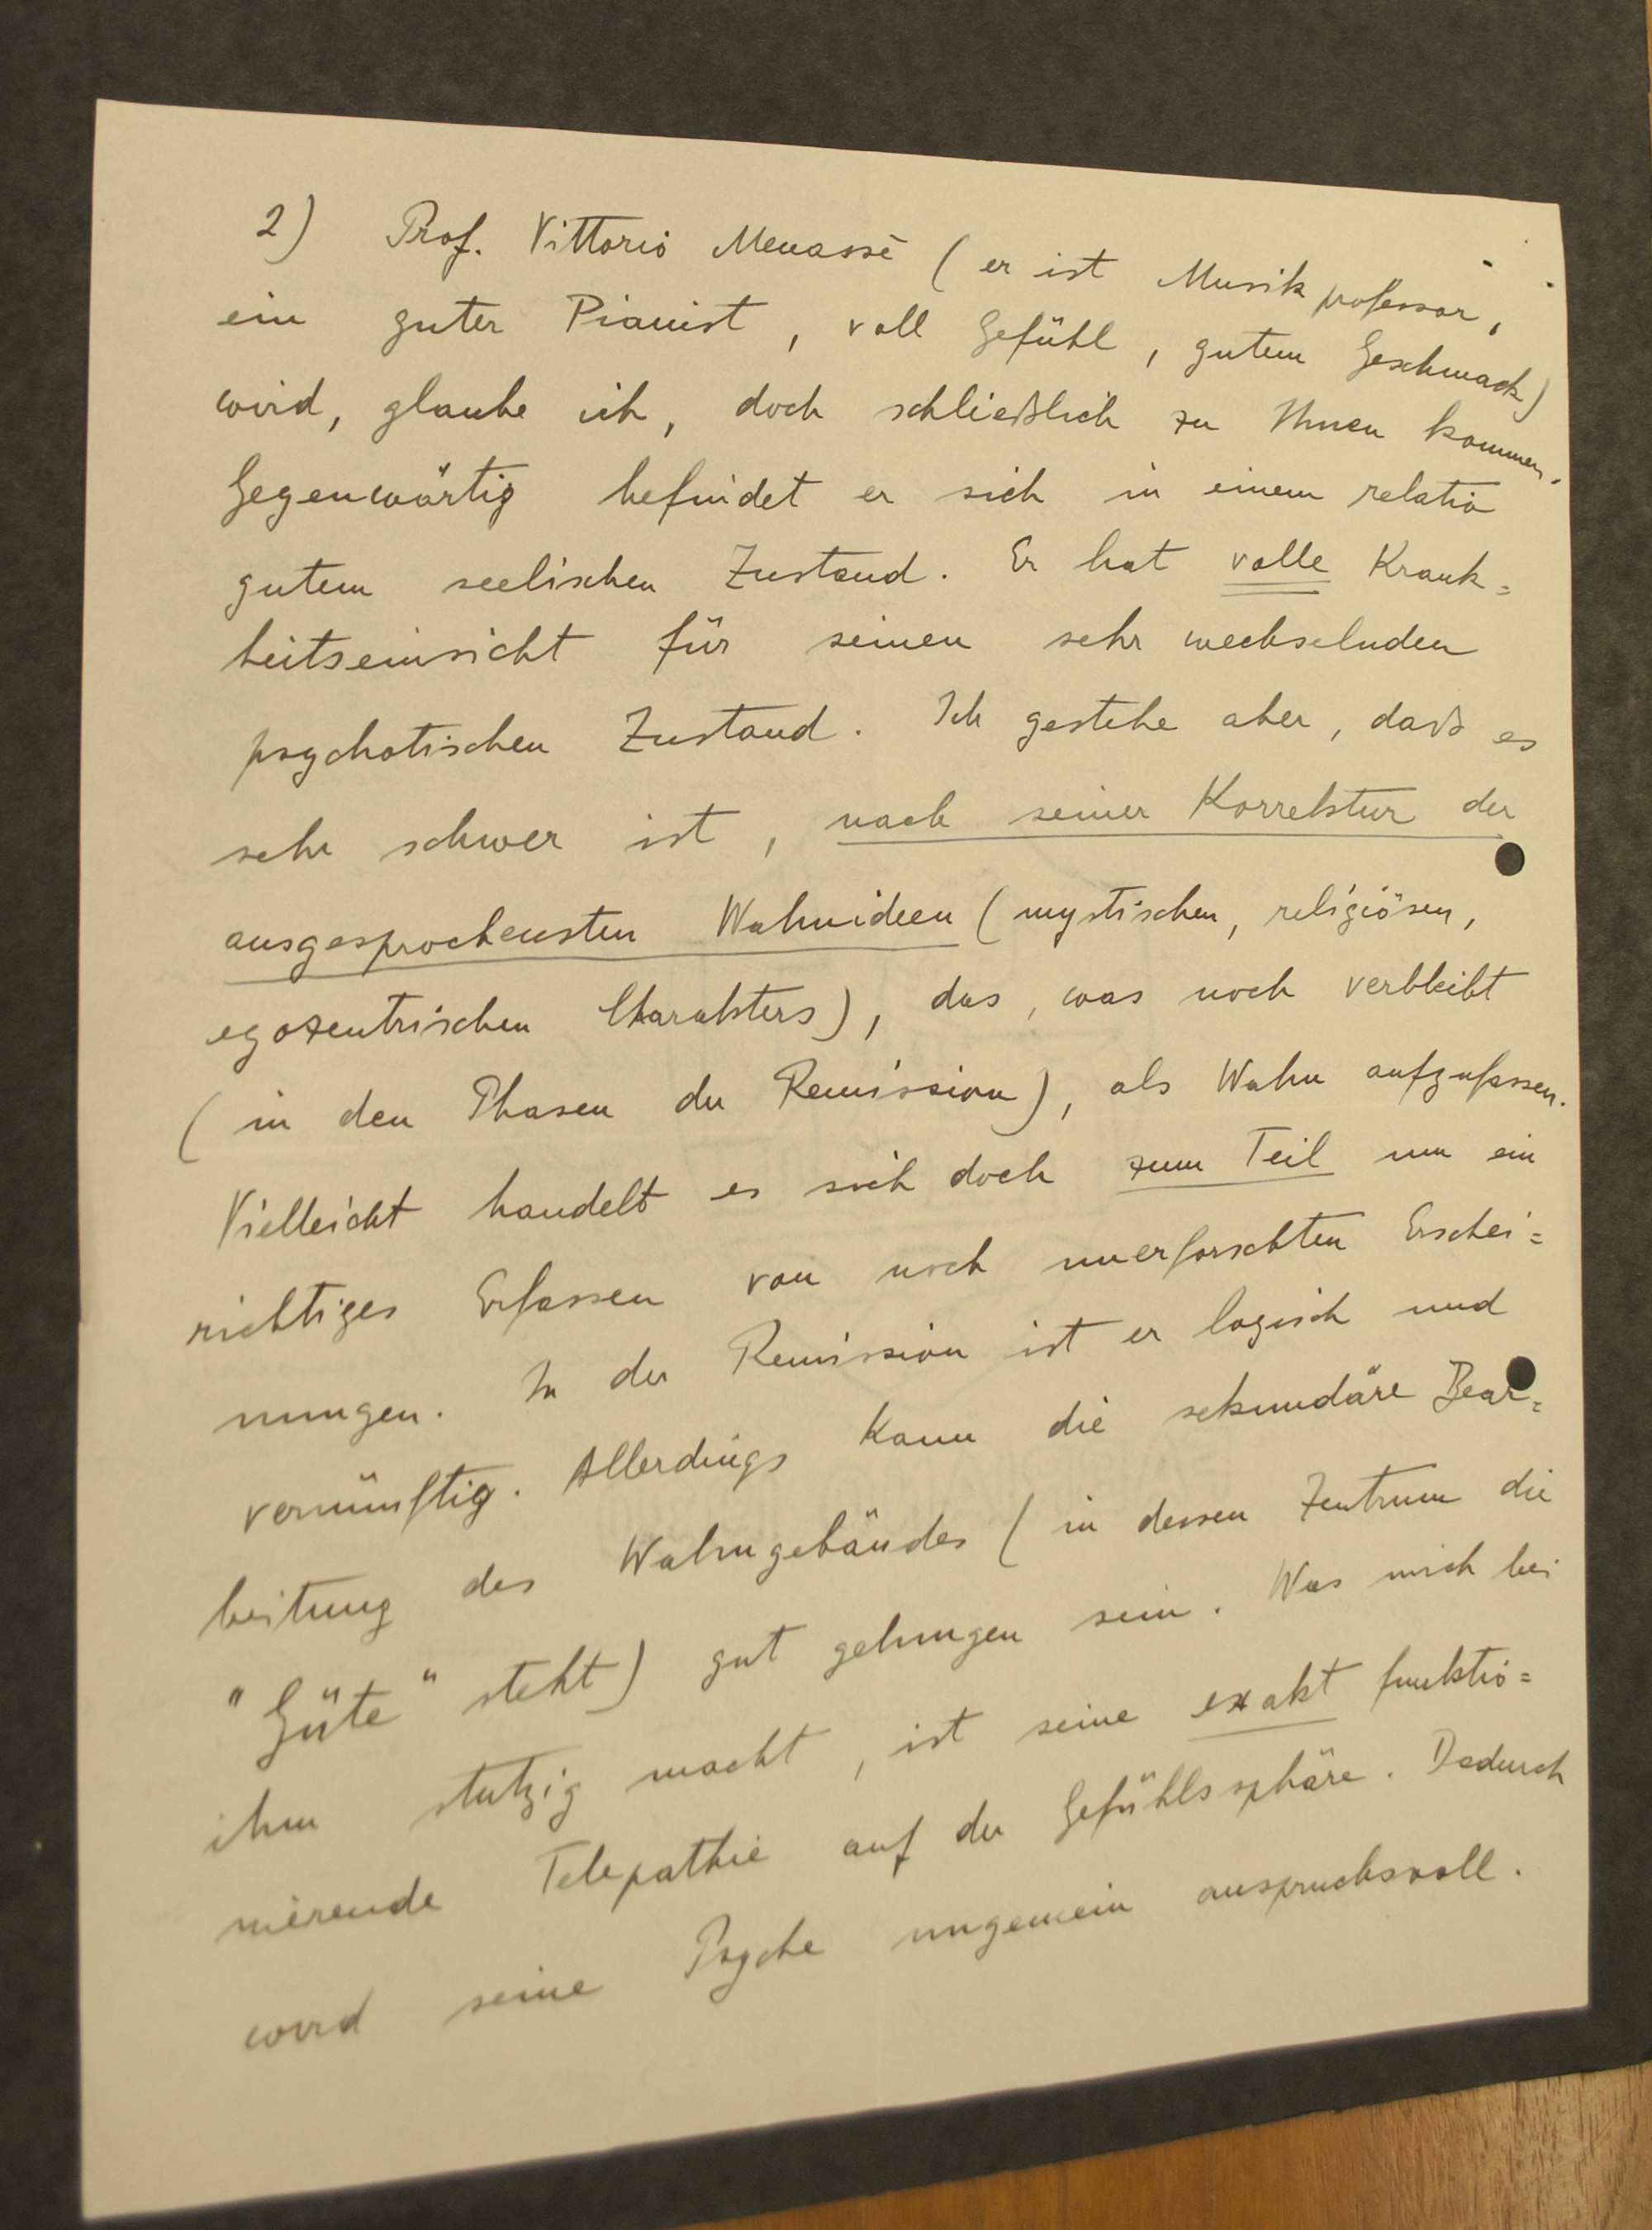 2) Prof. Vittorio Menassè (er ist Musikprofessor,
ein guter Pianist, voll Gefühl, gutem Geschmack)
wird, glaube ich, doch schließlich zu Ihnen kommen.
Gegenwärtig befindet er sich in einem relativ
gutem seelischen Zustand. Er hat volle Krank=
heitseinsicht für seinen sehr wechselnden
psychotischen Zustand. Ich gestehe aber, daß es
sehr schwer ist, nach seiner Korrektur der
ausgesprochensten Wahnideen (mystischen, religiösen,
egozentrischen Charakters), das, was noch verbleibt
(in den Phasen der Remission), als Wahn aufzufassen.
Vielleicht handelt es sich doch zum Teil um ein
richtiges Erfassen von noch unerforschten Erschei=
nungen. In der Remission ist er logisch und
vernünftig. Allerdings kann die sekundäre Bear=
beitung des Wahngebäudes (in dessen Zentrum die
"Güte" steht) gut gelungen sein. Was mich bei
ihm stutzig macht, ist seine exakt funktio=
nierende Telepathie auf der Gefühlssphäre. Dadurch
wird seine Psyche ungemein anspruchsvoll.